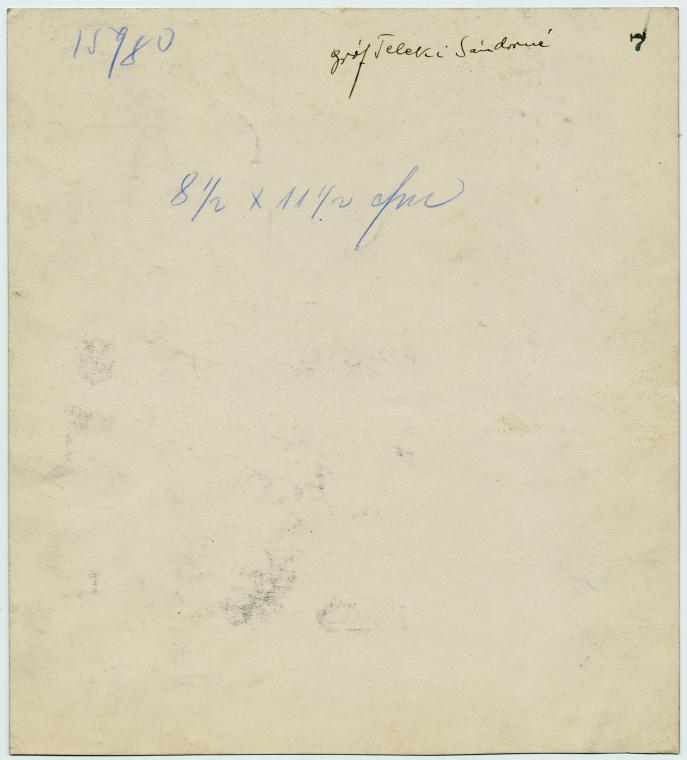 15980
gróf Teleki Sándorné
7
8 1/2 x 11 1/2